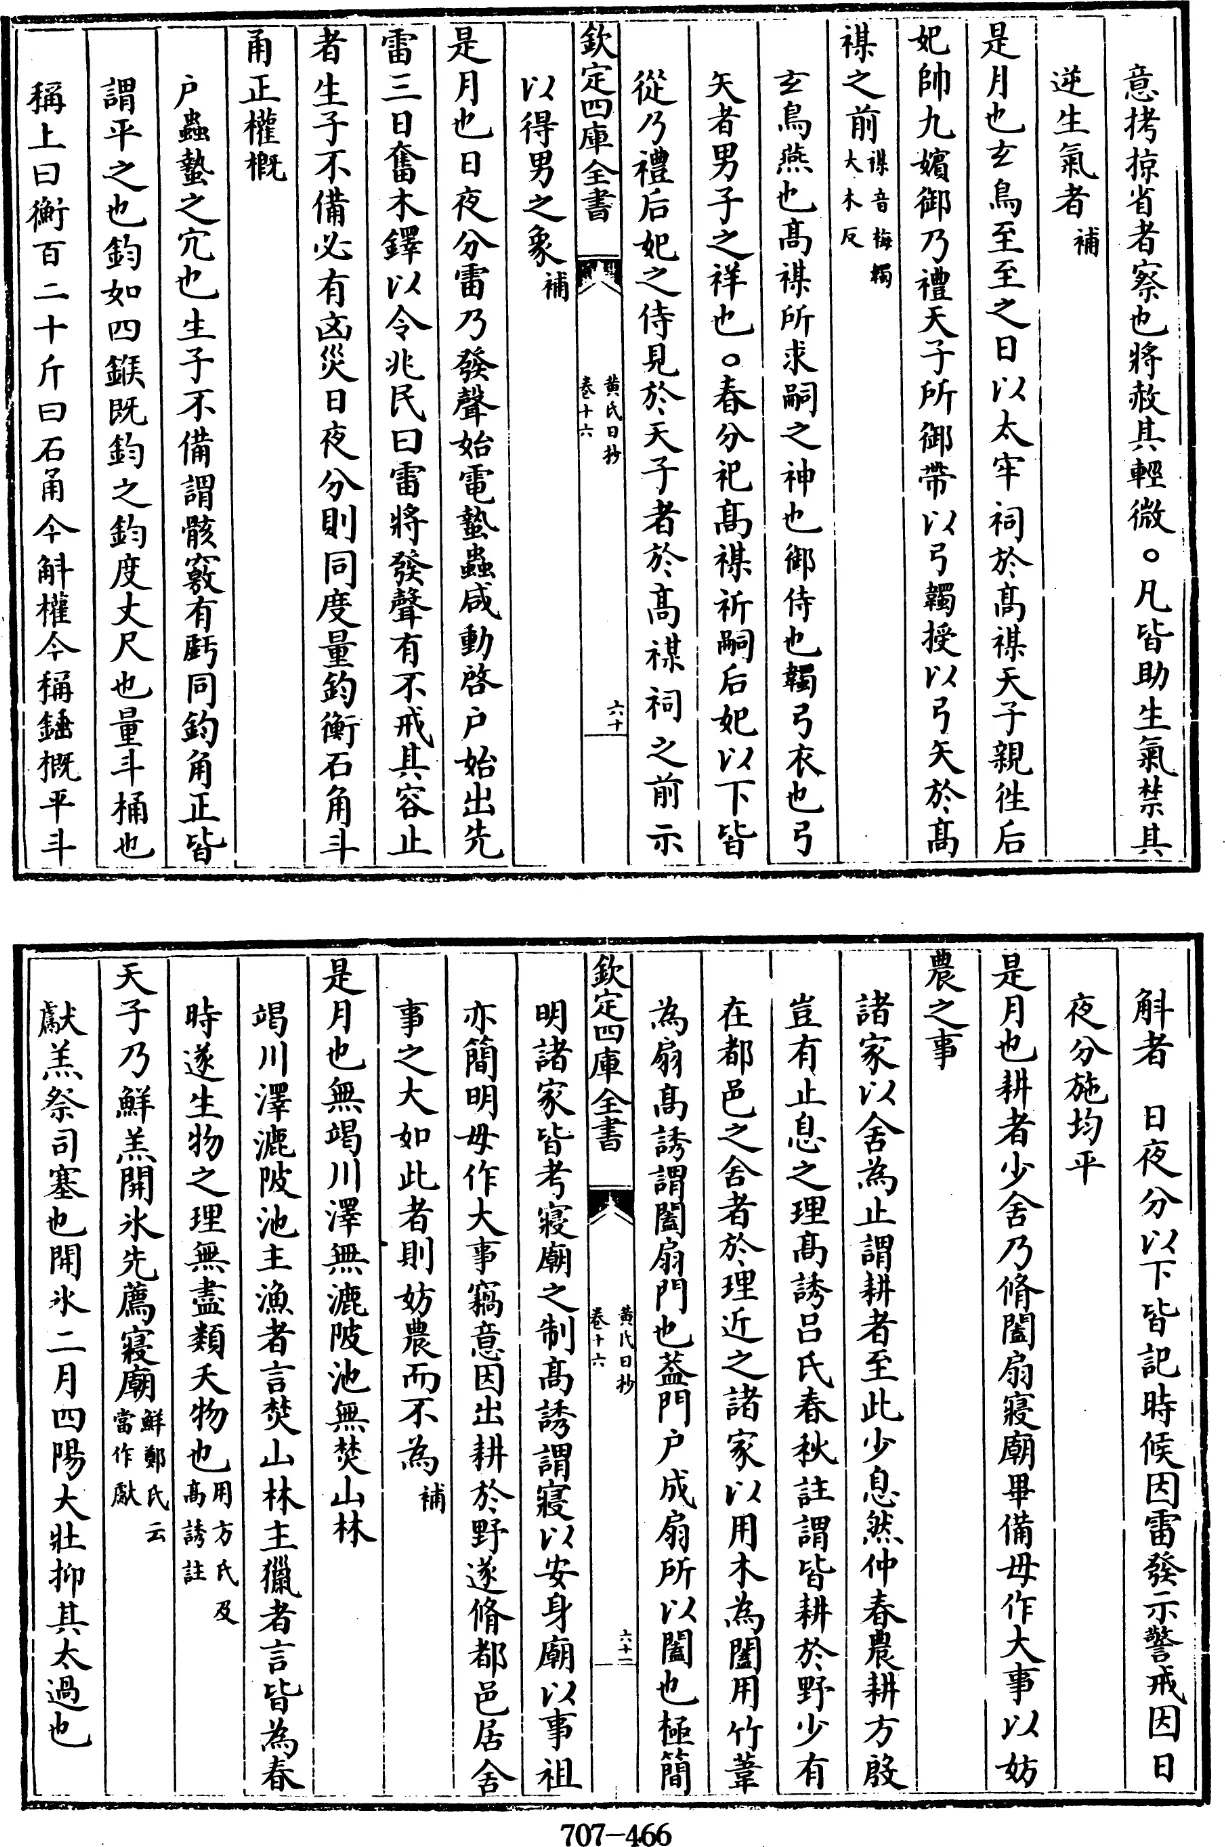 意拷掠省者察也將赦其輕微○凡皆助生氣禁其
逆生氣者補
是月也玄鳥至至之日以太牢祠於髙禖天子親徃后
妃帥九嬪御乃禮天子所御帶以弓韣授以弓矢於髙
禖之前禖音梅韣大木反
玄鳥燕也髙禖所求嗣之神也御侍也韣弓衣也弓
矢者男子之祥也○春分祀髙禖祈嗣后妃以下皆
從乃禮后妃之侍見於天子者於髙禖祠之前示
欽定四庫全書
黄氏日抄
卷十六
六十
以得男之象補
是月也日夜分雷乃發聲始電蟄蟲咸動啓户始出先
雷三日奮木鐸以令兆民曰雷將發聲有不戒其容止
者生子不備必有凶災日夜分則同度量鈞衡石角斗
甬正權槪
户蟲蟄之穴也生子不備謂骸竅有虧同鈞角正皆
謂平之也鈞如四鍭既鈞之鈞度丈尺也量斗桶也
稱上曰衡百二十斤曰石甬今斛權今稱錘槪平斗
斛者 日夜分以下皆記時候因雷發示警戒因日
夜分施均平
是月也耕者少舍乃脩闔扇寢廟畢備毋作大事以妨
農之事
諸家以舍為止謂耕者至此少息然仲春農耕方殷
豈有止息之理髙誘吕氏春秋註謂皆耕於野少有
在都邑之舍者於理近之諸家以用木為闔用竹葦
為扇髙誘謂闔扇門也葢門户成扇所以闔也極簡
欽定四庫全書
黄氏日抄
卷十六
六十一
明諸家皆考寢廟之制髙誘謂寢以安身廟以事祖
亦簡明毋作大事竊意因出耕於野遂脩都邑居舍
事之大如此者則妨農而不為補
是月也無竭川澤無漉陂池無焚山林
竭川澤漉陂池主漁者言焚山林主獵者言皆為春
時遂生物之理無盡類夭物也用方氏及髙誘註
天子乃鮮羔開氷先薦寢廟鮮鄭氏云當作獻
獻羔祭司塞也開氷二月四陽大壯抑其太過也
707-466